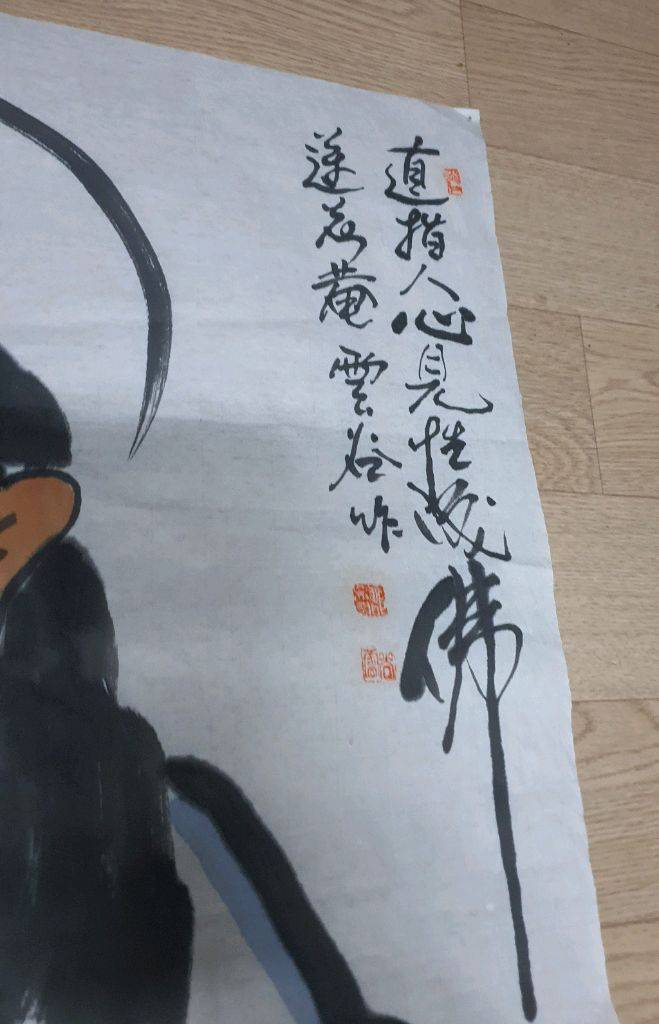 直指人心見性成佛
蓮花菴 雲谷作